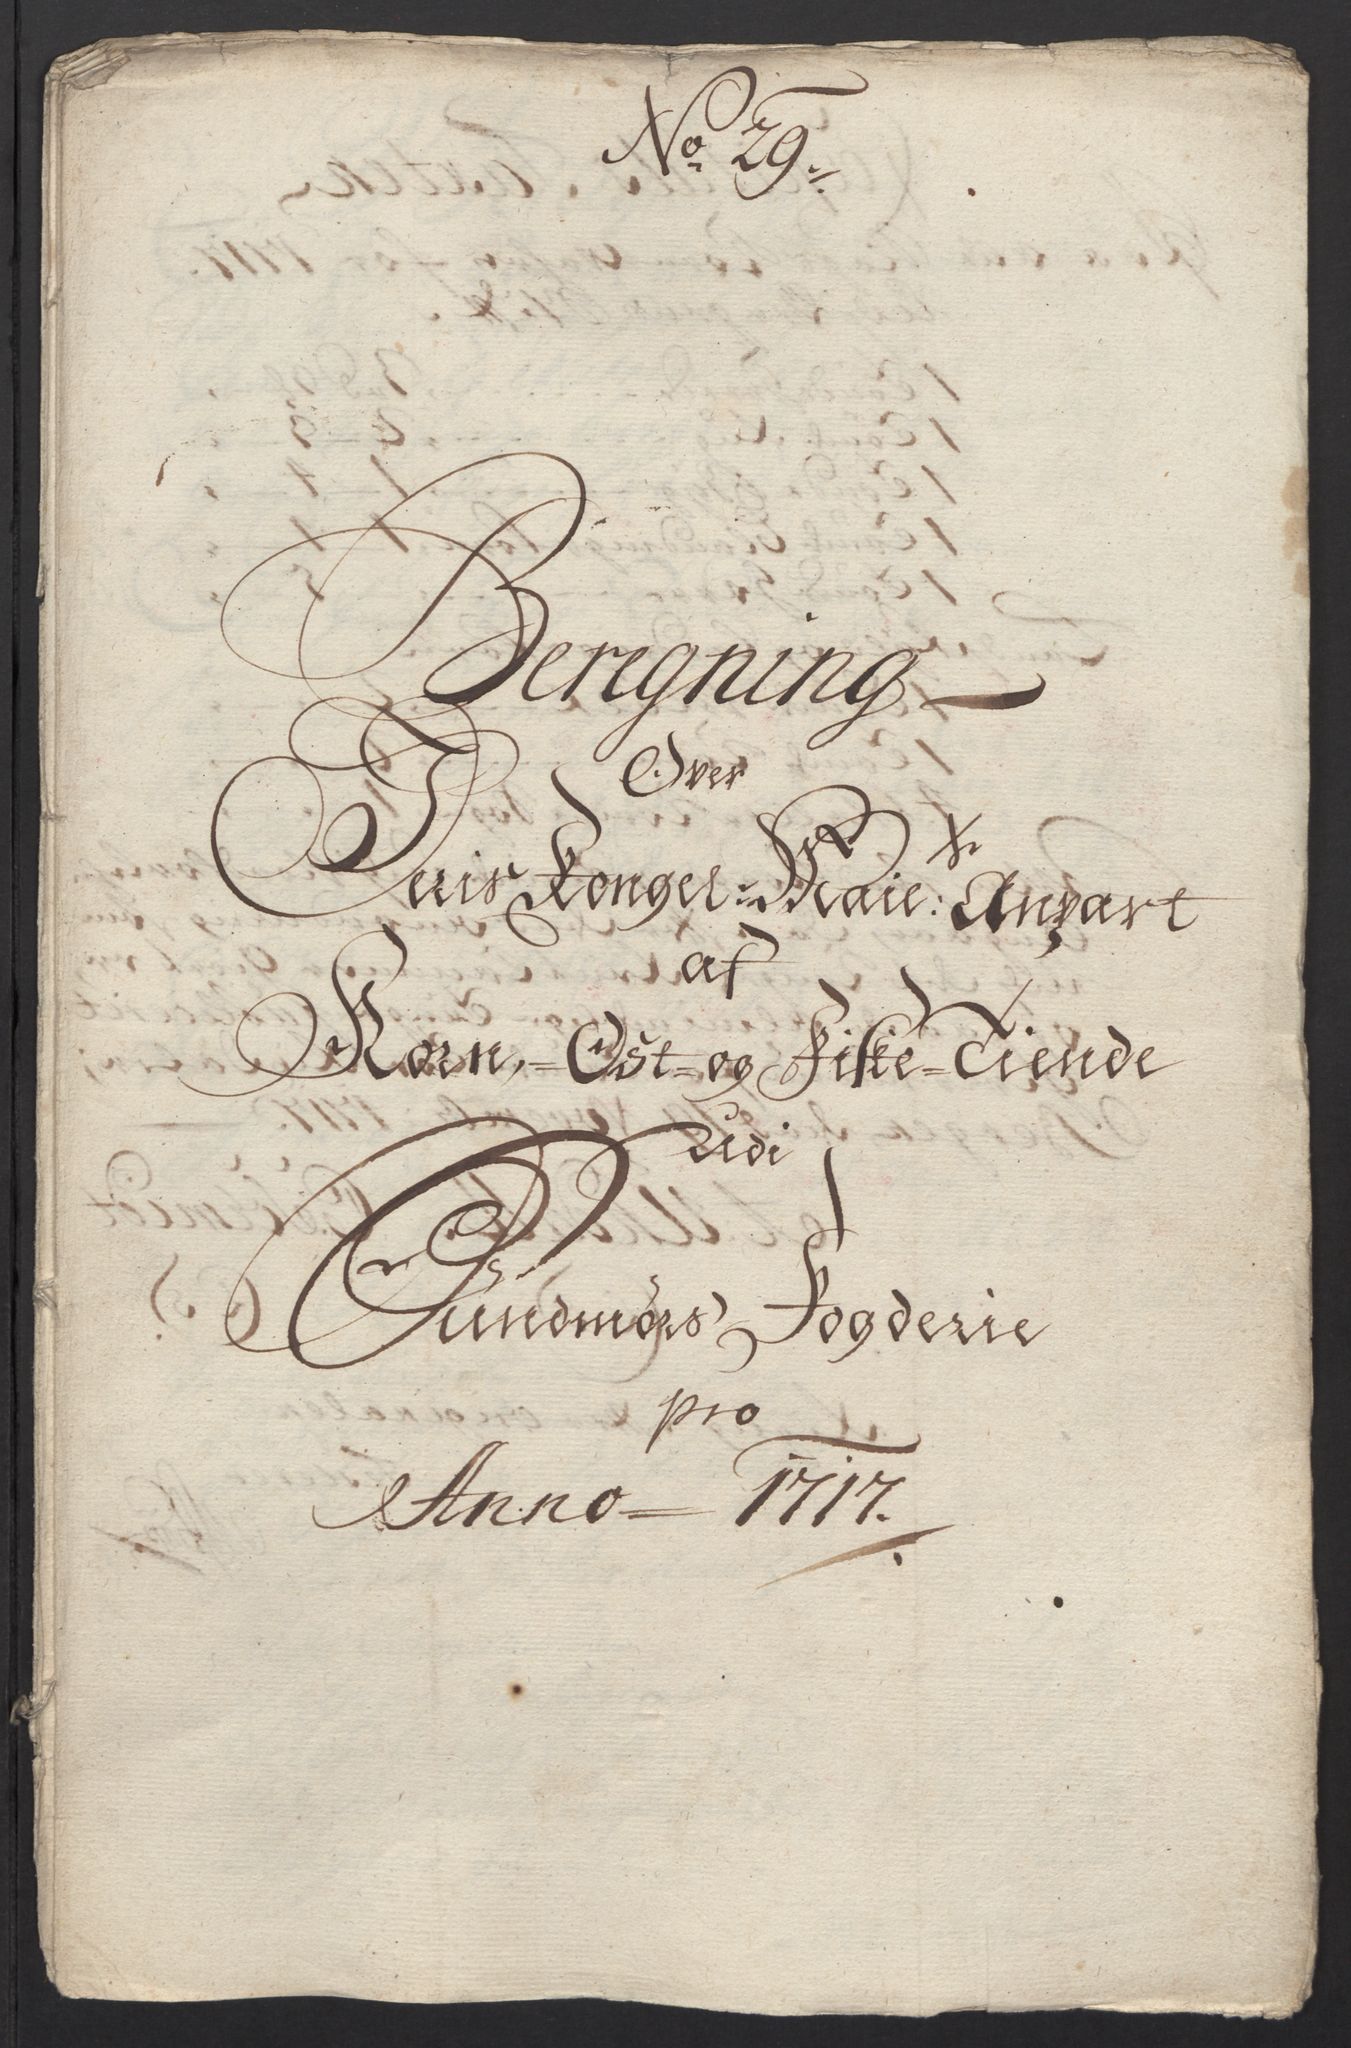 No 29.
Beregning
Over
Deris Kongel: Maie: Anpart
af
Korn, Ost og Fiske Tiende
Udi
Sundmørs Fogderie
pro
Anno 1717.